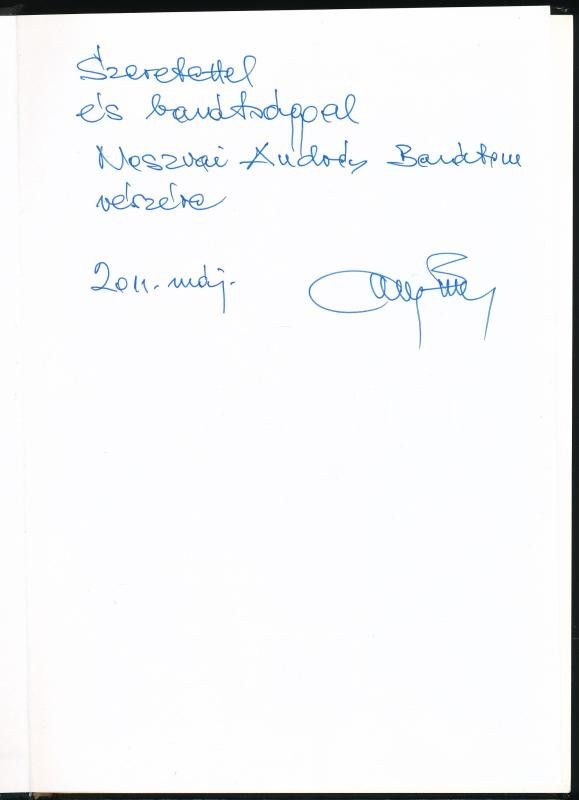 Szeretettel
és barátsággal
Neszvai András Barátom
részére
2011. máj.